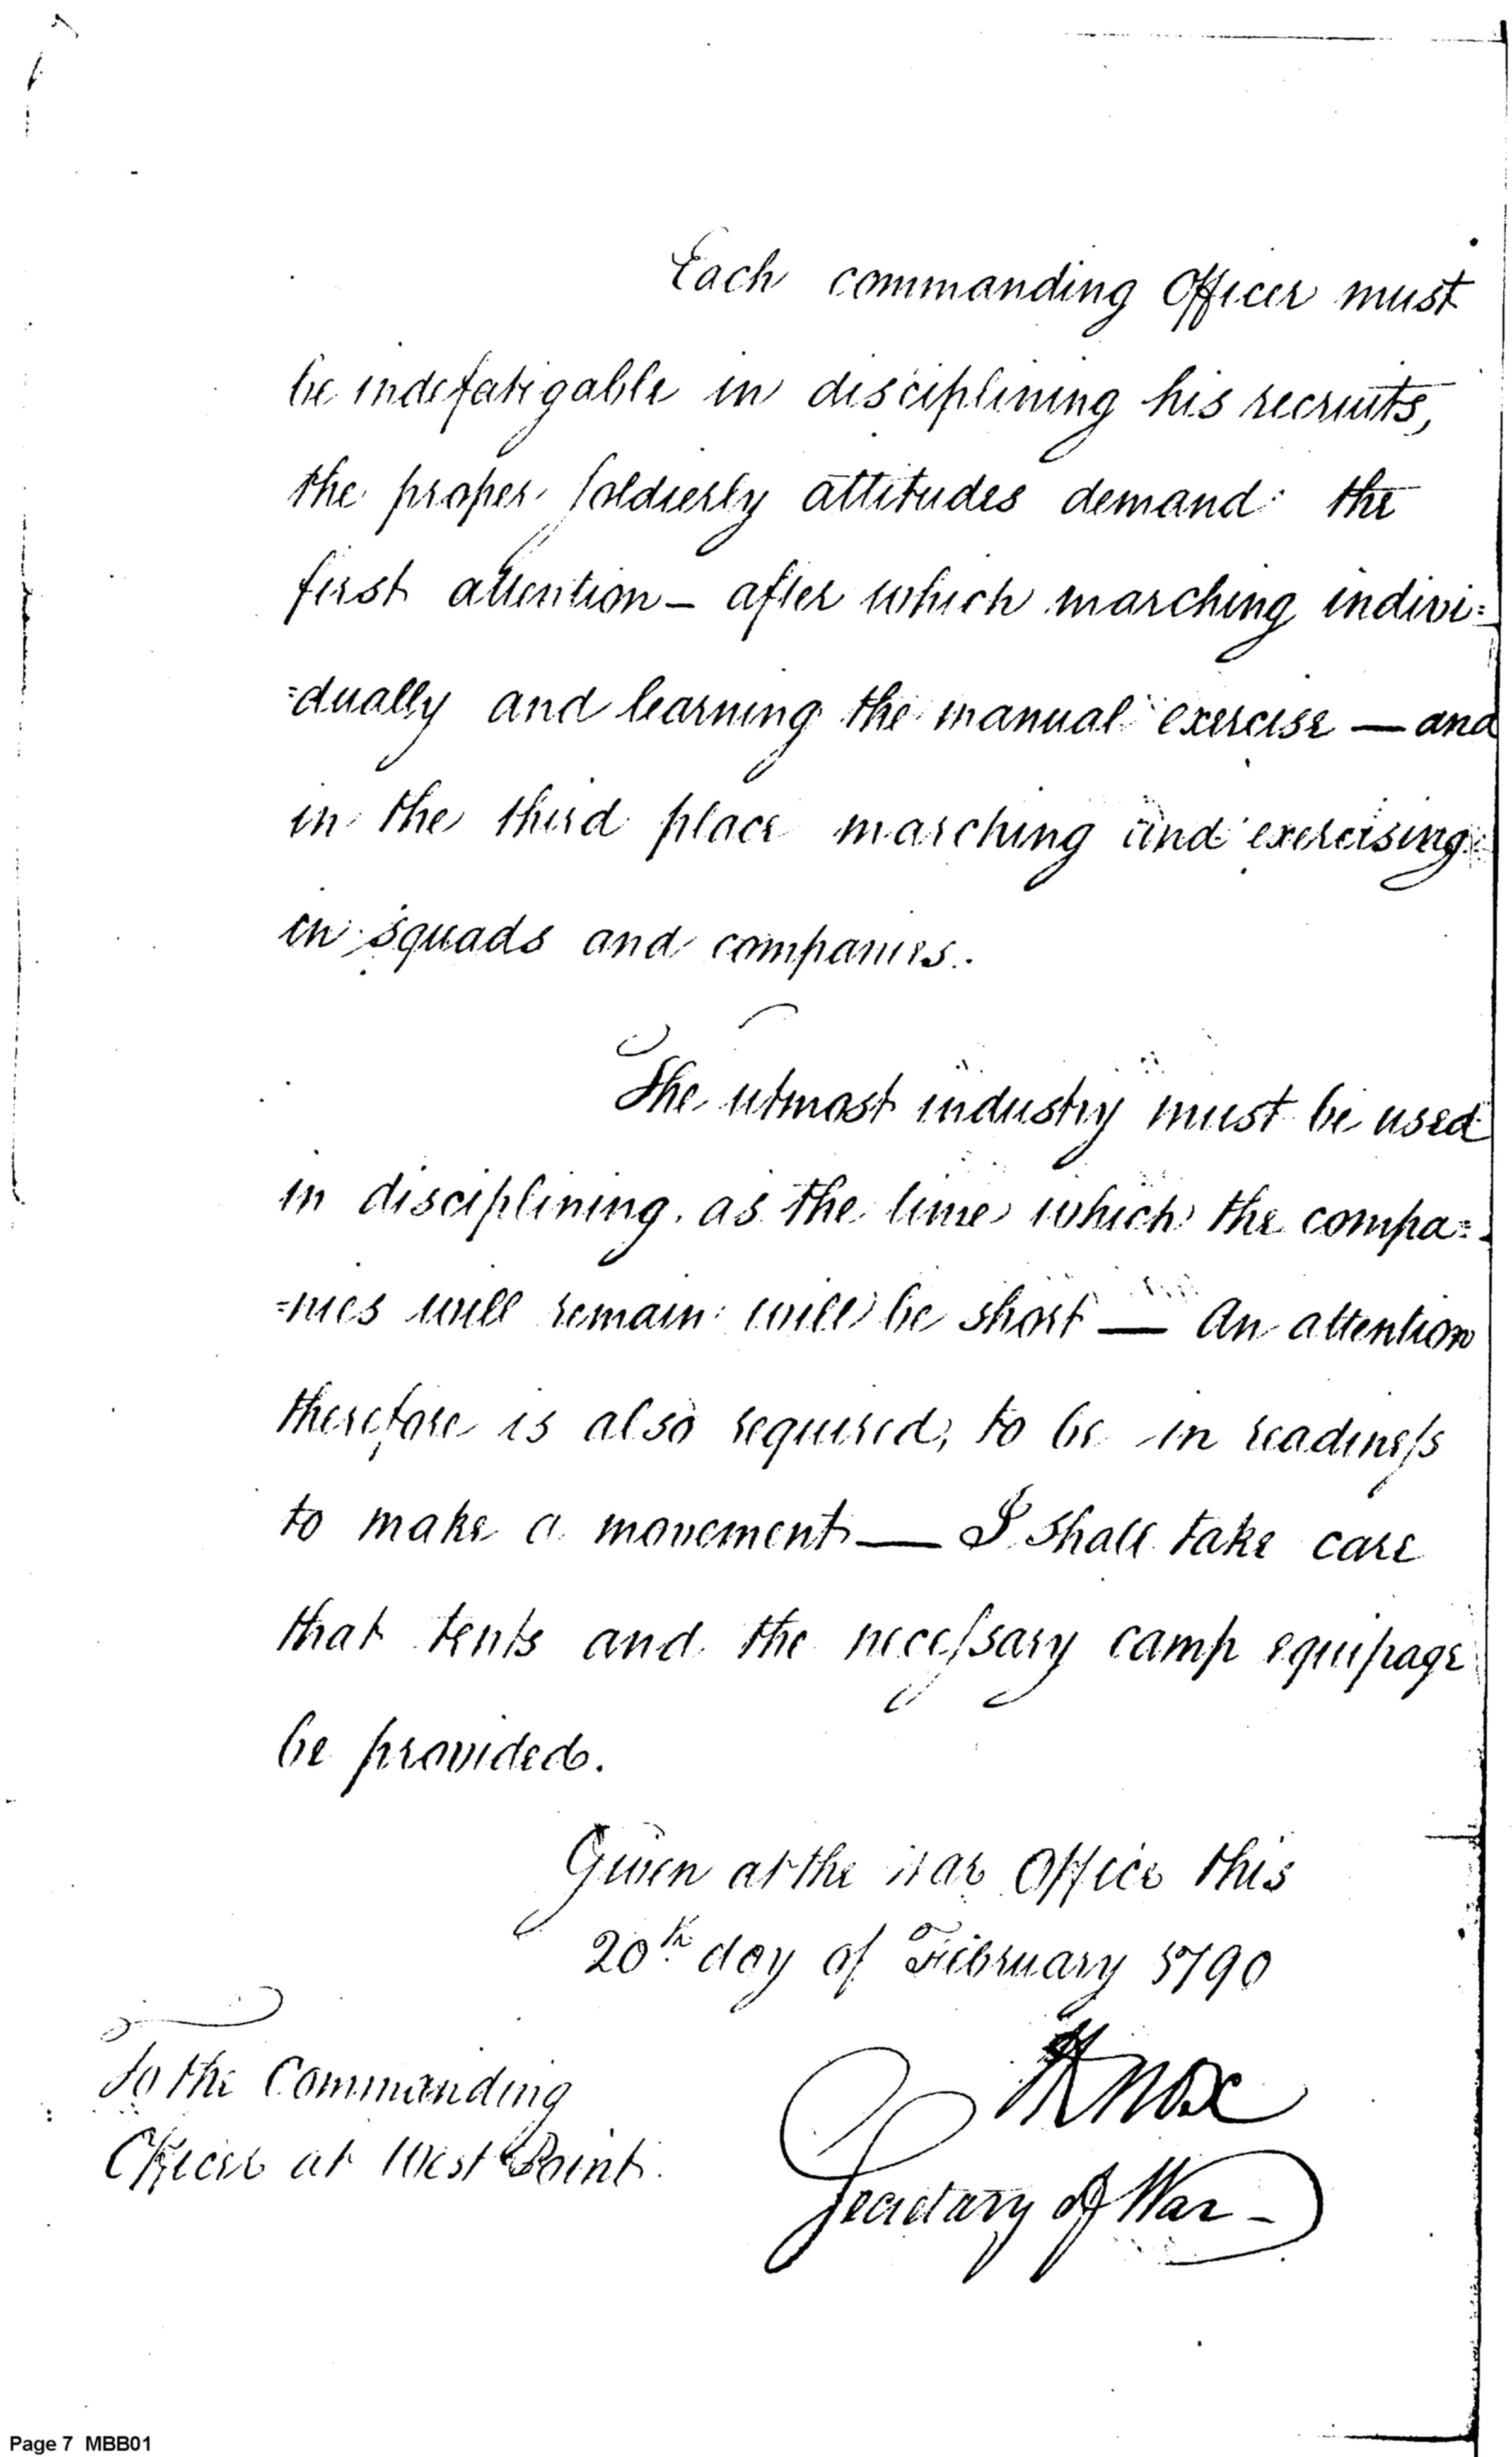 Each commanding Officer must
be indefatigable in disciplining his recruits,
the proper soldierly attitudes demand the
first attention — after which marching indivi=
=dually and learning the manual exercise — and
in the third place marching and exercising
in squads and companies.
The utmost industry must be used
in disciplining, as the time which the compa=
=nies will remain will be short — An attention
therefore is also required, to be in readiness
to make a movement — I shall take care
that tents and the necessary camp equipage
be provided.
Given at the war Office this
20th day of February 1790
HKnox
Secretary of War —
To the Commanding
Officer at West Point.
Page 7 MBB01